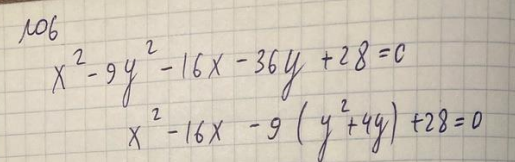 №6
x² - 9y² - 16x - 36y + 28 = 0
x² - 16x - 9 (y² + 4y) + 28 = 0